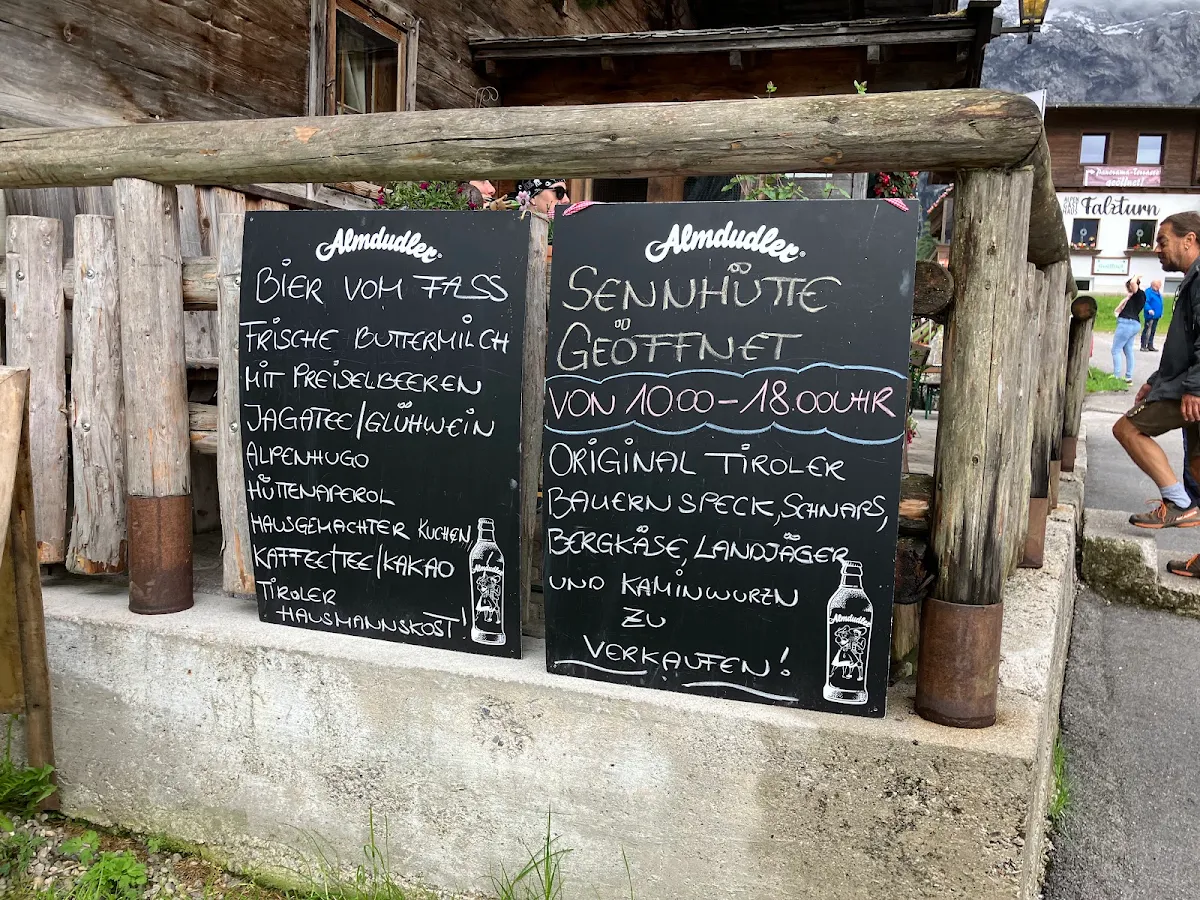 Almdudler
BIER VOM FASS
FRISCHE BUTTERMILCH
MIT PREISELBEEREN
JAGATEE/GLÜHWEIN
ALPENHUGO
HÜTTENAPEROL
HAUSGEMACHTER KUCHEN,
KAFFEE/TEE/KAKAO
TIROLER
HAUSMANNSKOST!
Almdudler
Almdudler
SENNHÜTTE
GEÖFFNET
VON 10.00-18.00 UHR
ORIGINAL TIROLER
BAUERNSPECK, SCHNAPS,
BERGKÄSE, LANDJÄGER
UND KAMINWURZN
ZU
VERKAUFEN!
Almdudler
Panorama-Terrasse
geöffnet!
ALPEN
HAUS
Falzturn